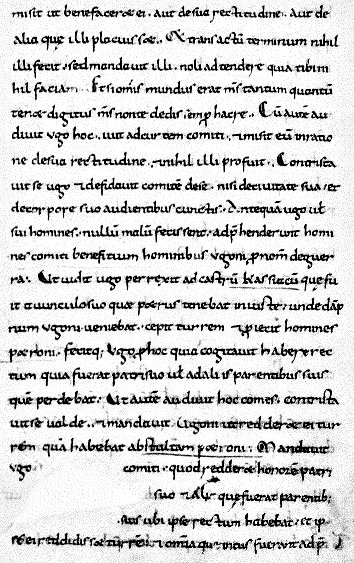 misit ut benefaceret ei. aut de sua rectitudine. aut de
alia que illi placuisset. Et transactũ terminum nihil
illi fecit. sed mandavit illi. noli adtendere quia tibi ni
hil faciam. Et si omnis mundus erat m̃s tantum quantũ
tenet digitus m̃s non te dedissem p hac re. Cũ autẽ au
divit ugo hoc. ivit ad curtem comiti. et misit eũ in ratio
ne de sua rectitudine. et nihil illi profuit. Contrista
vit se ugo et defidavit comitẽ de se. nisi de civitate sua et
de corpore suo audientibus cunctis. Antequã ugo vł
sui homines. nullũ malũ fecissent. adp̃henderunt homi
nes comiti benefitium hominibus ugoni. p nom̃ de guer
ra. Ut vidit ugo perrexit ad castrũ que fu
it avunculo suo quae petrus tenebat iniuste. unde dãp
num ugoni veniebat. cepit turrem et piecit homines
petroni. fecitq; ugo p hoc quia cogitavit habere rec
tum quia fuerat patri suo vł ad aliis parentibus suis
quẽ perdebat. Ut autẽ audivit hoc comes. contrista
vit se valde. et mandavit ugoni ut redderet ei tur
rẽm quã habebat abstultam petroni. Mandavit
ugo comiti. quod redderet honorẽ patri
suo et que fuerat parentib;
suis ubi ipse rectum habebat. et ip
se ei reddidisset turrẽ. et omnia que intus fuerant adp̃